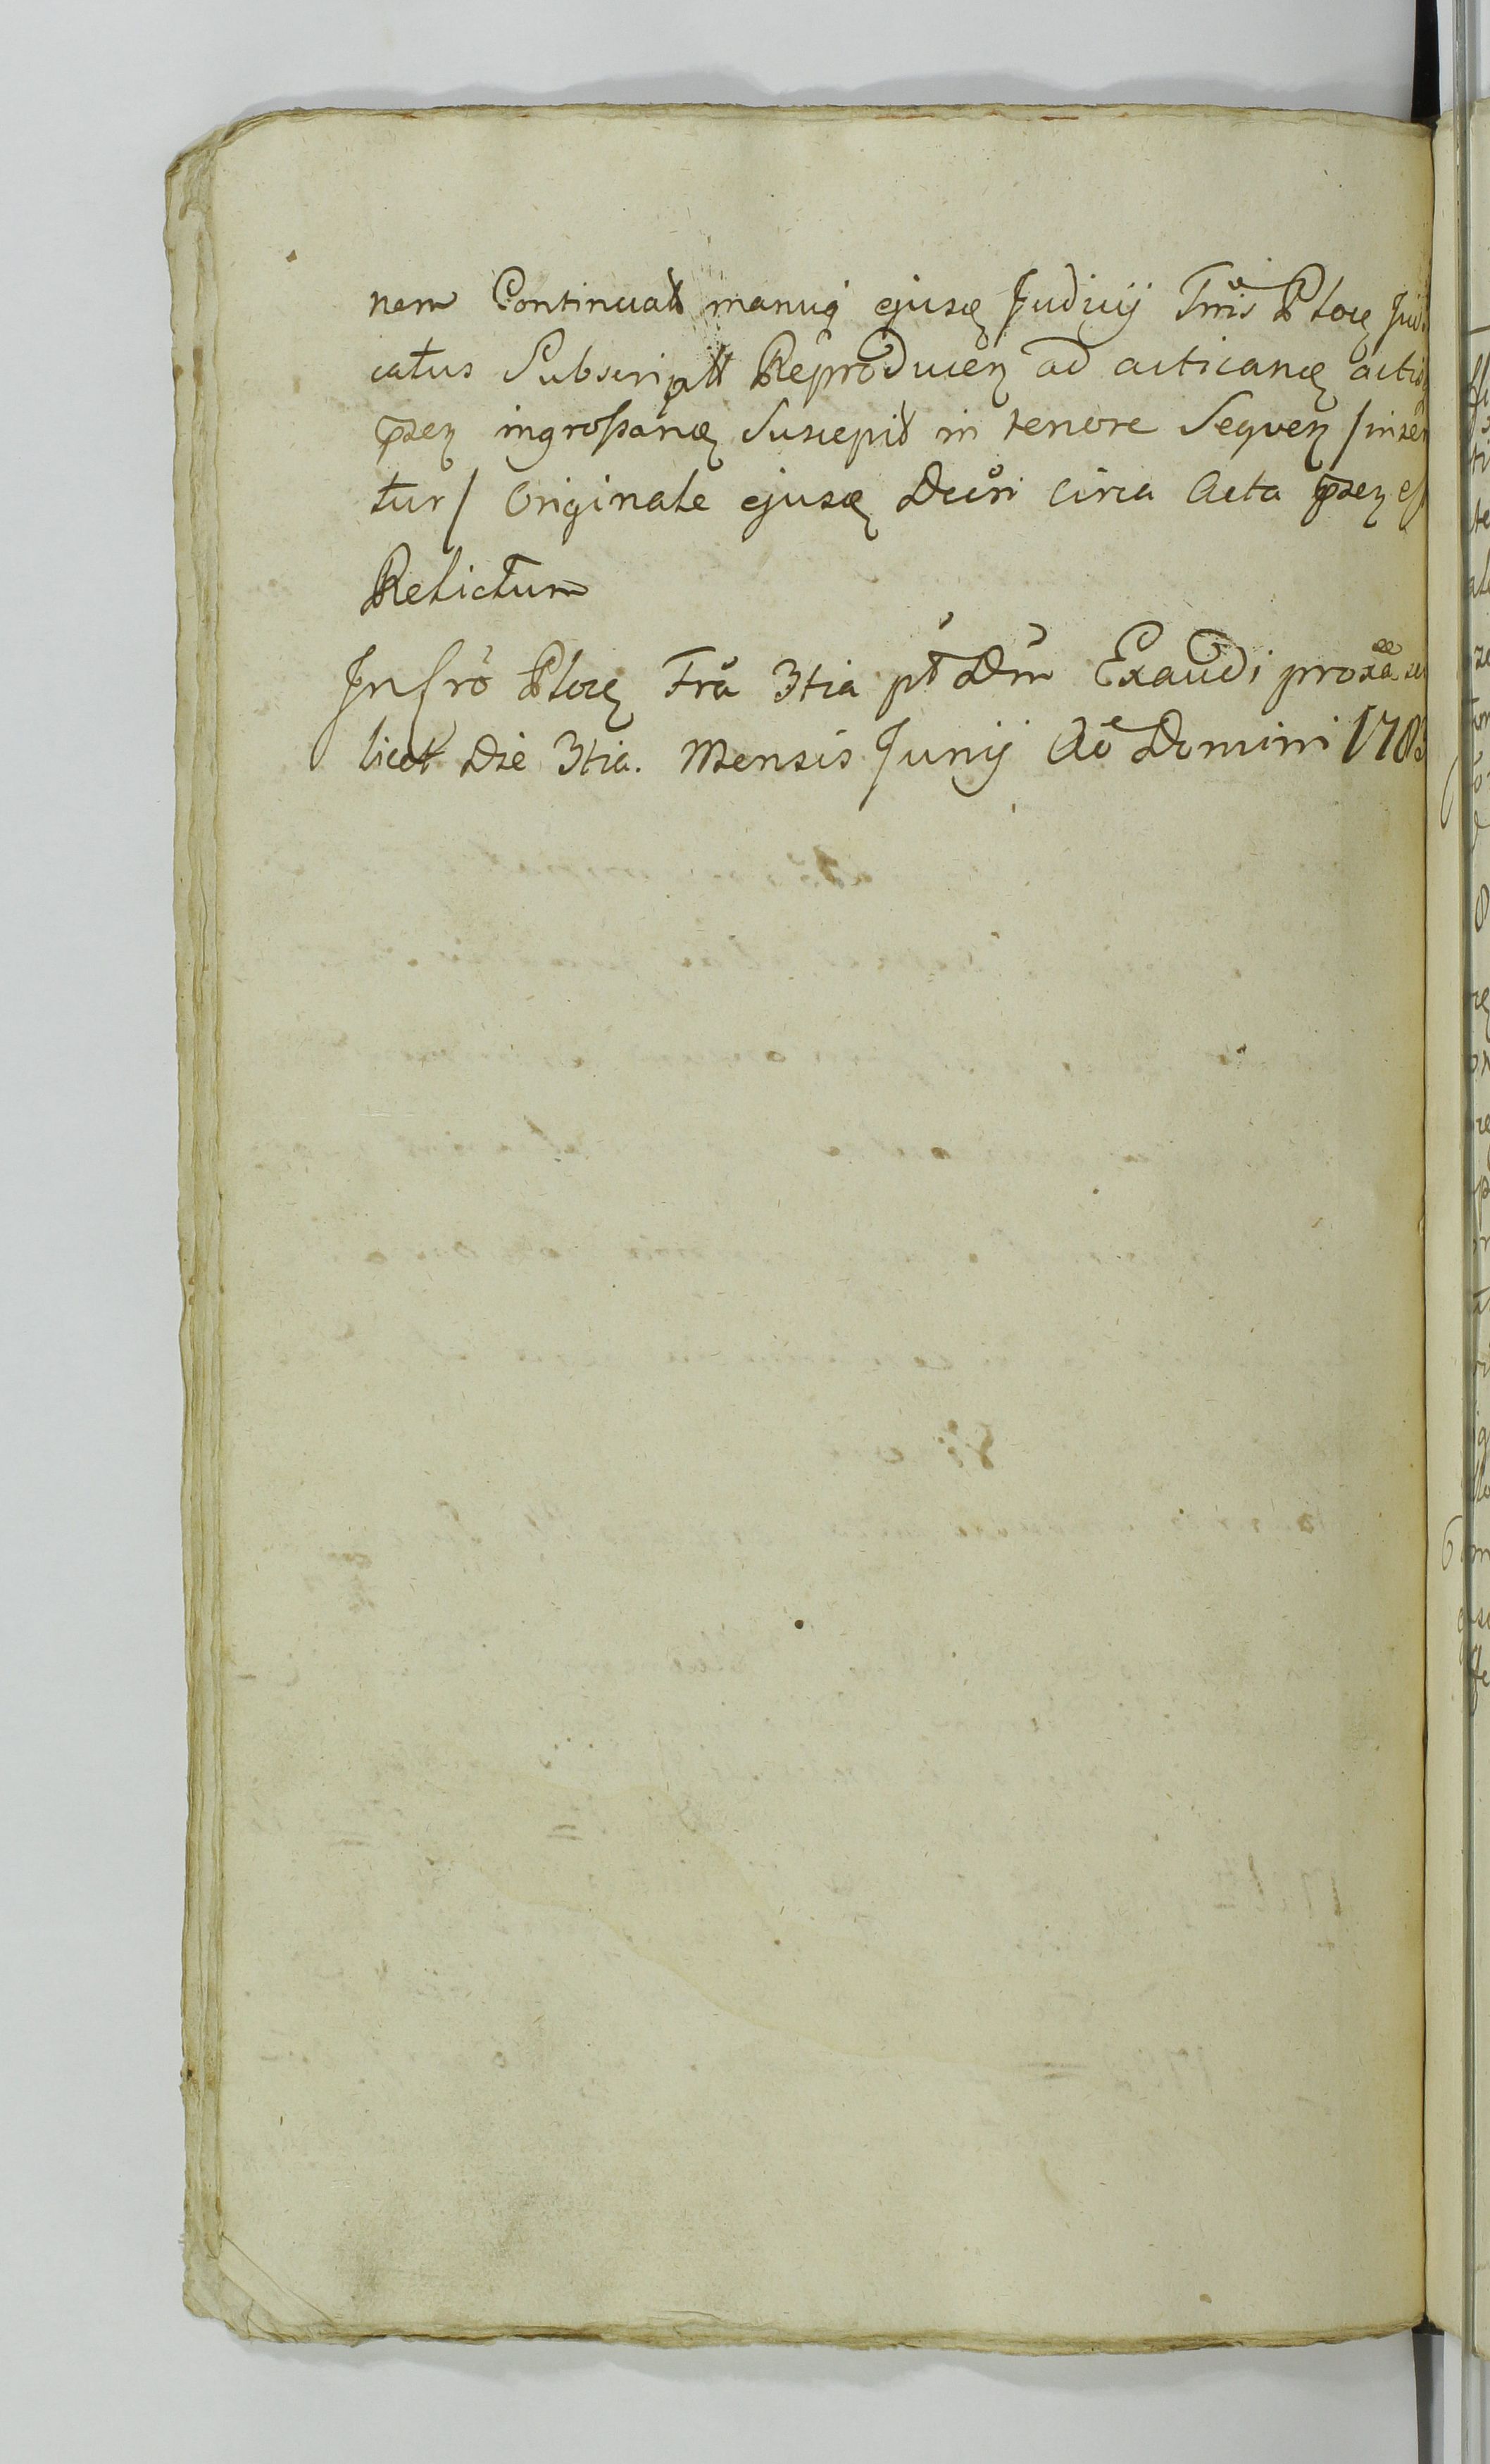 nem Continuatt manuq ejusq Judicij Tris Plocz Judi
catus Subscriptt Reproducez ad acticanq actis
pntez ingrossanq Suscepitt in tenore Sequez /inser
tur/ Originale ejusq Decri circa Acta pntez est
Relictum
In fro Plocz Fra 3tia pt Dm Exaudi proxa
licet Die 3tia. Mensis Junij Ao Domini 1783